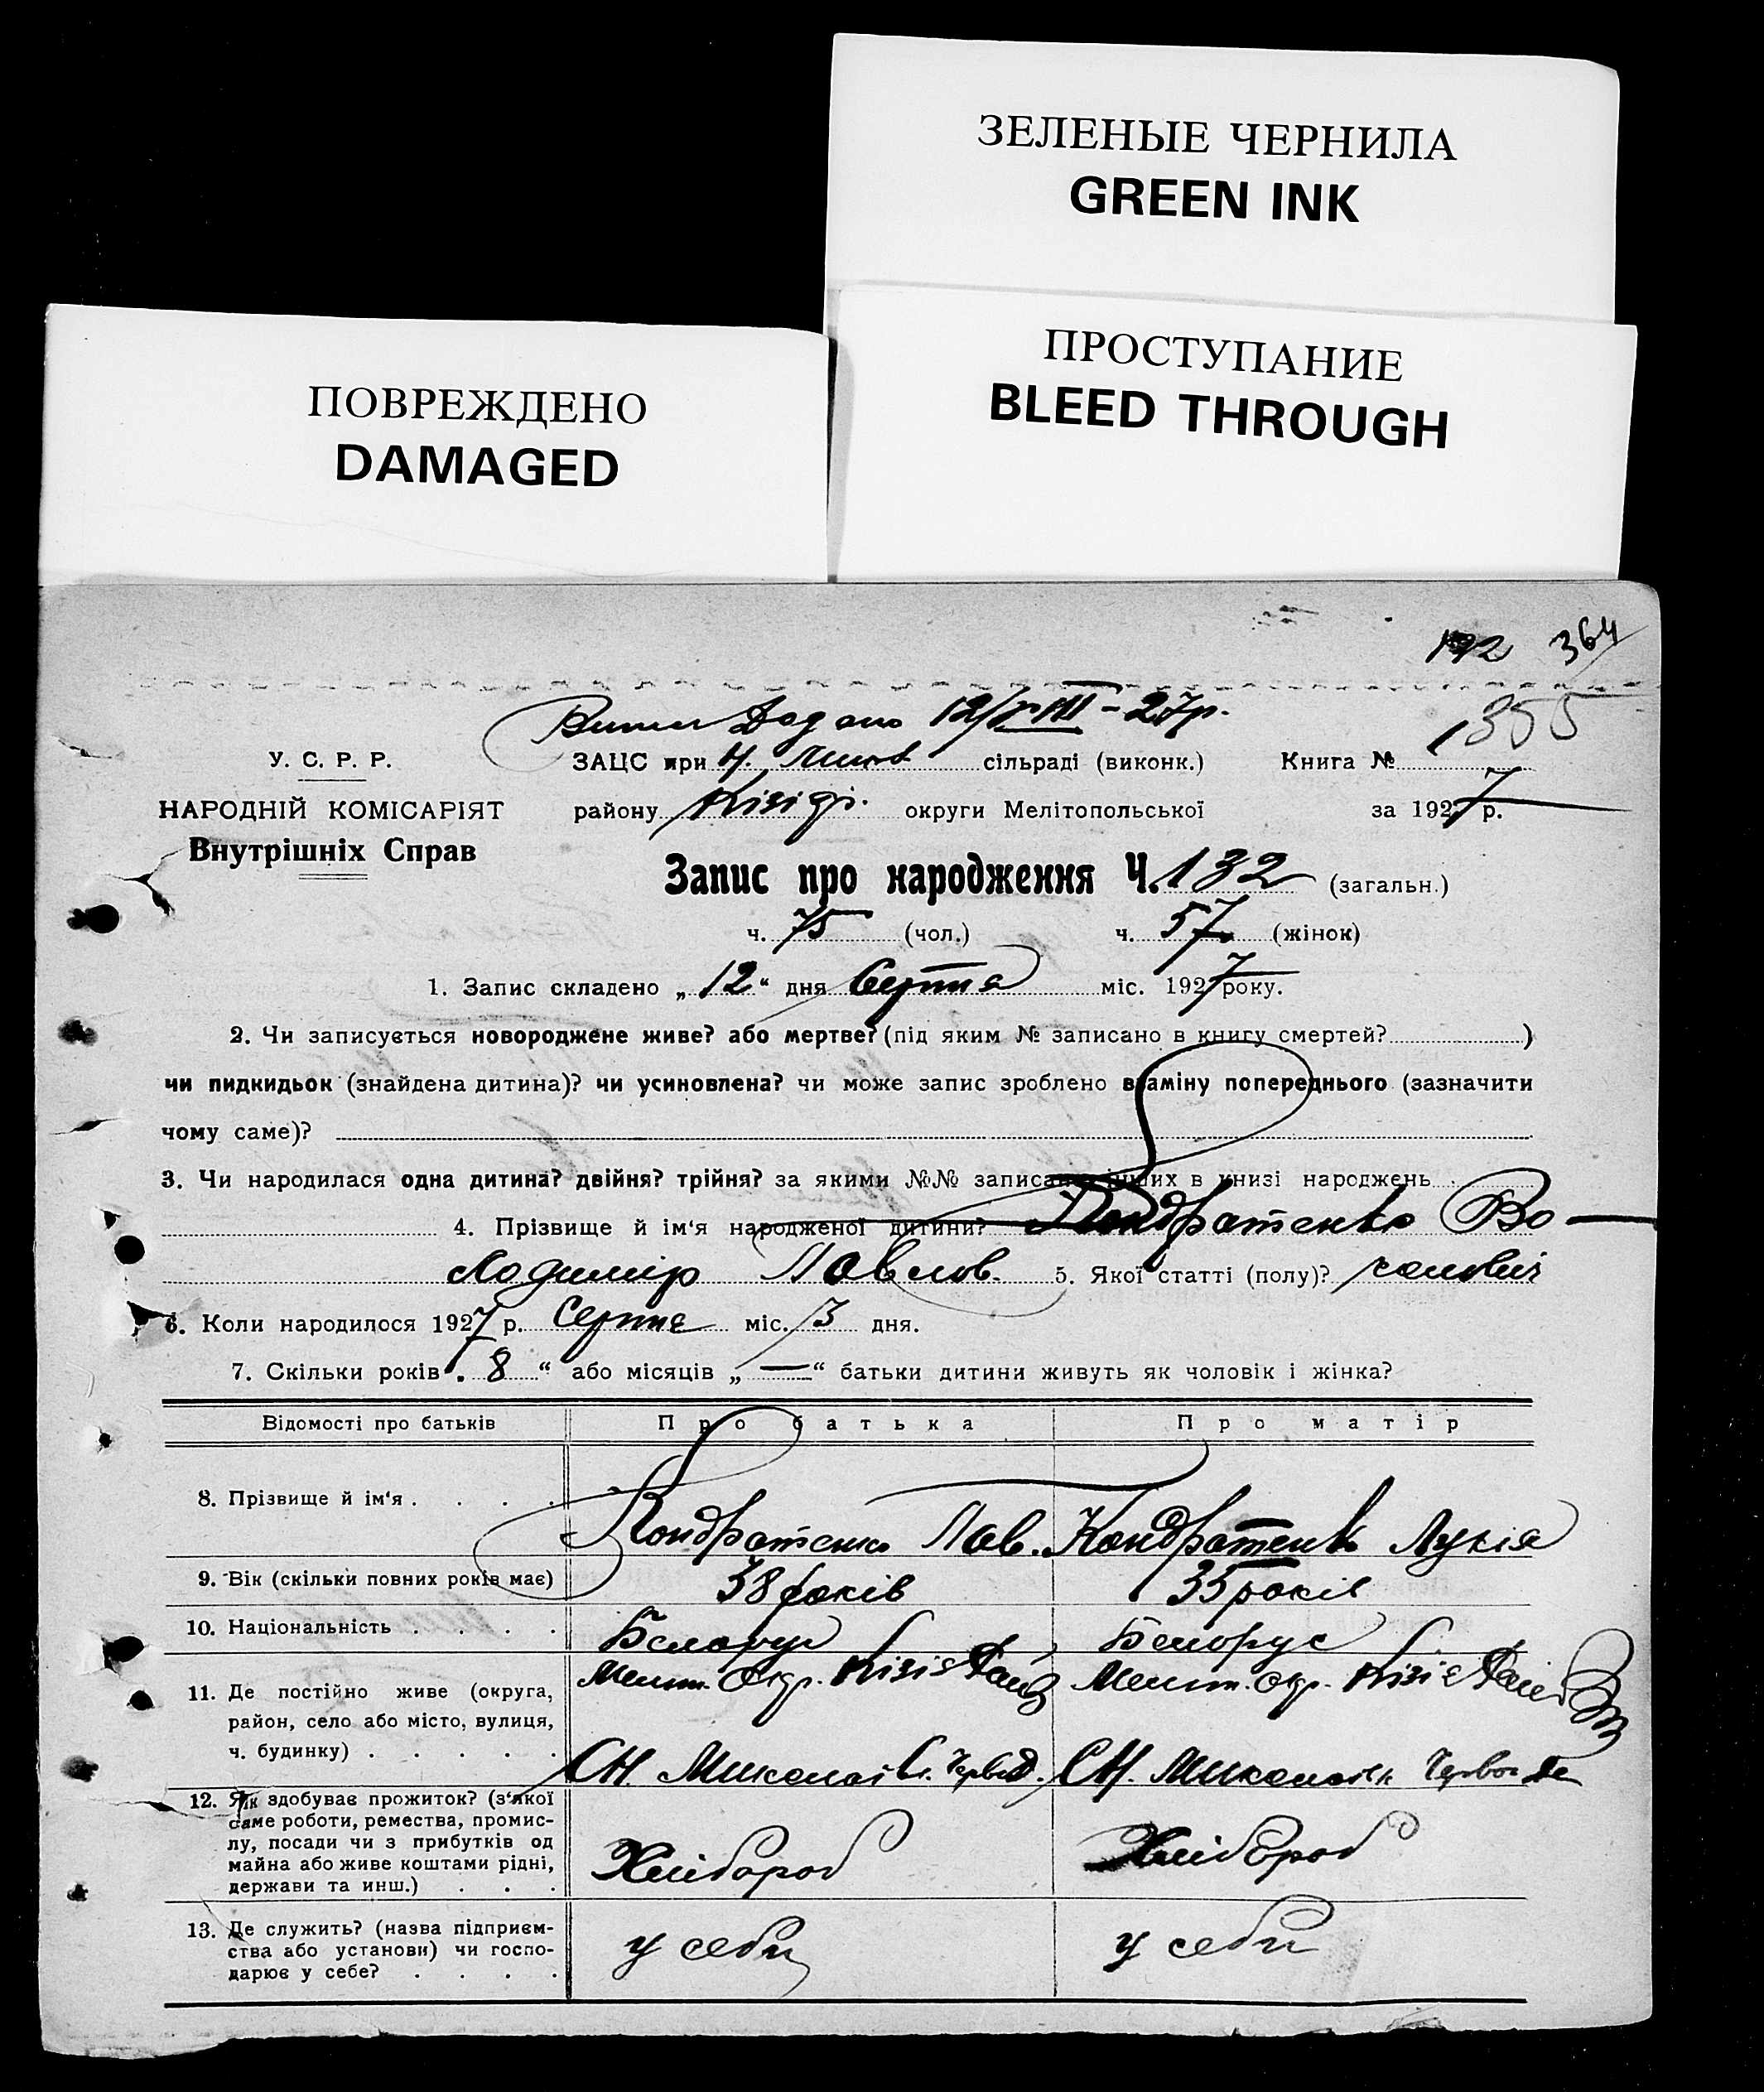 ЗЕЛЕНЫЕ ЧЕРНИЛА
GREEN INK
ПРОСТУПАНИЕ
BLEED THROUGH
ПОВРЕЖДЕНО
DAMAGED
192 364
12/VIII-27р. 355
У. С. Р. Р.
ЗАЦС при сільраді (виконк.) Книга №
НАРОДНІЙ КОМІСАРІЯТ
району округи Мелітопольської за 1927 р.
Внутрішніх Справ
Запис про народження Ч. 132 (загальн.)
ч. 75 (чол.) ч. 57 (жінок)
1. Запис складено „12“ дня Серпня міс. 1927 року.
2. Чи записується новороджене живе? або мертве? (під яким № записано в книгу смертей? )
чи пидкидьок (знайдена дитина)? чи усиновлена? чи може запис зроблено взаміну попереднього (зазначити
чому саме)?
3. Чи народилася одна дитина? двійня? трійня? за якими №№ записані інших в книзі народжень
4. Прізвище й ім'я народженої дитини? Кондратенко Во-
лодимір Павлов. 5. Якої статті (полу)? чоловіч
6. Коли народилося 1927 р. Серпня міс. 3 дня.
7. Скільки років „8“ або місяців „—“ батьки дитини живуть як чоловік і жінка?
Відомості про батьків Про батька Про матір
8. Прізвище й ім'я . . . . Кондратенко Пав. Кондратенко Лукія
9. Вік (скільки повних років має) 38 років 35 років
10. Національність . . . . Белорус Белорус
11. Де постійно живе (округа,
район, село або місто, вулиця,
ч. будинку) . . . . .
Мелит. Окр. Мелит. окр.
12. Як здобуває прожиток? (з'якої
саме роботи, ремества, промис-
лу, посади чи з прибутків од
майна або живе коштами рідні,
держави та инш.) . . .
Хлібороб Хлібороб
13. Де служить? (назва підприєм-
ства або установи) чи госпо-
дарює у себе? . . . .
у себи у себи